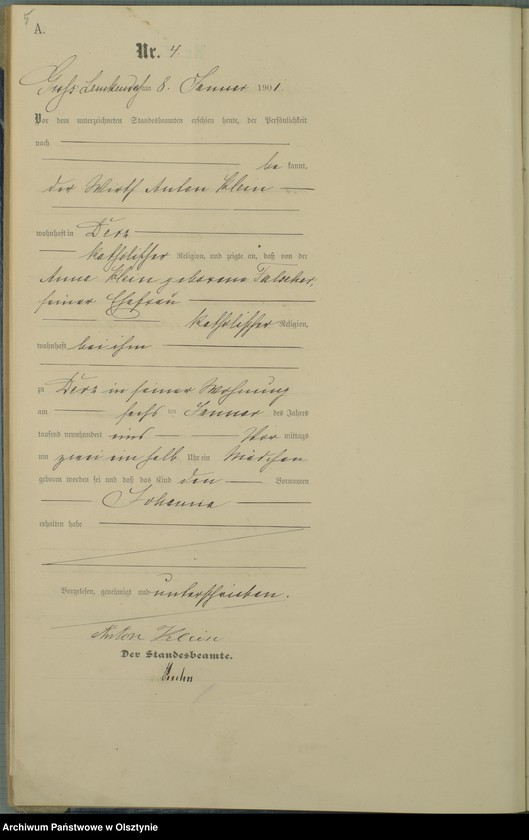 5
A.
Nr. 4.
Gross Lemkendorf am 8. Januar 1901.
Vor dem unterzeichneten Standesbeamten erschien heute, der Persönlichkeit
nach
be kannt,
der Wirth Anton Klein
wohnhaft in Derz
katholischer Religion, und zeigte an, daß von der
Anna Klein geborene
seiner Ehefrau
katholischer Religion,
wohnhaft bei ihm
zu Derz in seiner Wohnung
am sechs ten Januar des Jahres
tausend neunhundert eins Vor mittags
um zwei ein halb Uhr ein Mädchen
geboren worden sei und daß das Kind den Vornamen
Johanna
erhalten habe
Vorgelesen, genehmigt und unterschrieben.
Anton Klein
Der Standesbeamte.
Archiwum Państwowe w Olsztynie